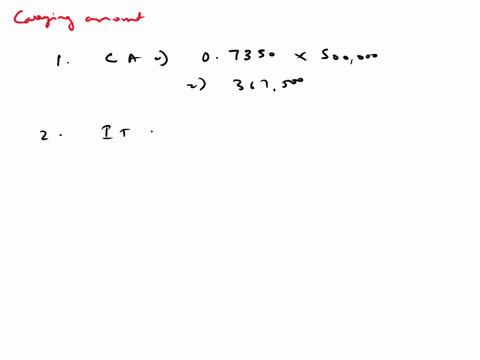 Carrying amount
1. C A =) 0.7350 x 500,000
=) 367,500
2. I T .